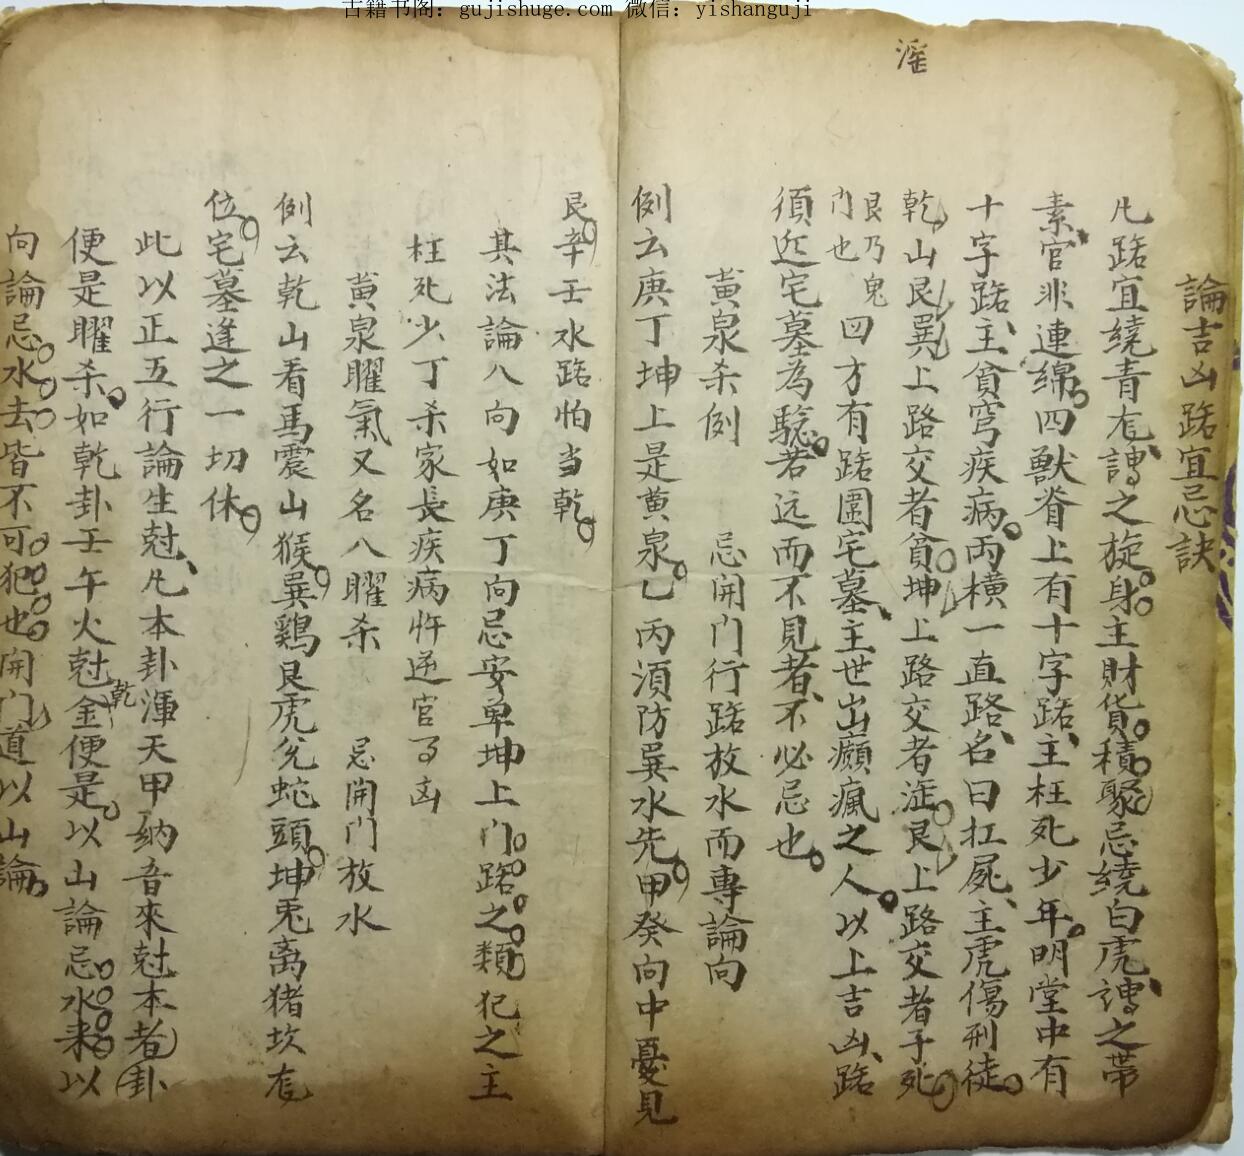 古籍书阁：gujishuge.com 微信：yishanguji
淫
論吉凶路宜忌訣
凡路宜繞青龙謂之旋身主財貨積聚忌繞白虎謂之帯
素官非連綿四獸脊上有十字路主枉死少年明堂中有
十字路主貧窮疾病両横一直路名曰扛屍主虎傷刑徒
乾山艮巽上路交者貧坤上路交者淫艮上路交者子死
艮乃鬼
门也
四方有路圍宅墓主世出癲瘋之人以上吉凶路
須近宅墓為騐若远而不見者不必忌也
黄泉杀例 忌開门行路放水而專論向
例云庚丁坤上是黄泉乙丙須防巽水先甲癸向中憂見
艮辛壬水路怕当乾
其法論八向如庚丁向忌安单坤上门路之類犯之主
枉死少丁杀家長疾病忤逆官司凶
黄泉曜氣又名八曜杀 忌開门放水
例云乾山看馬震山猴巽鷄艮虎兊蛇頭坤兎离猪坎龙
位宅墓逢之一切休
此以正五行論生尅凡本卦渾天甲納音來尅本者卦
便是曜杀如乾卦壬午火尅乾金便是以山論忌水来以
向論忌水去皆不可犯也開门道以山論